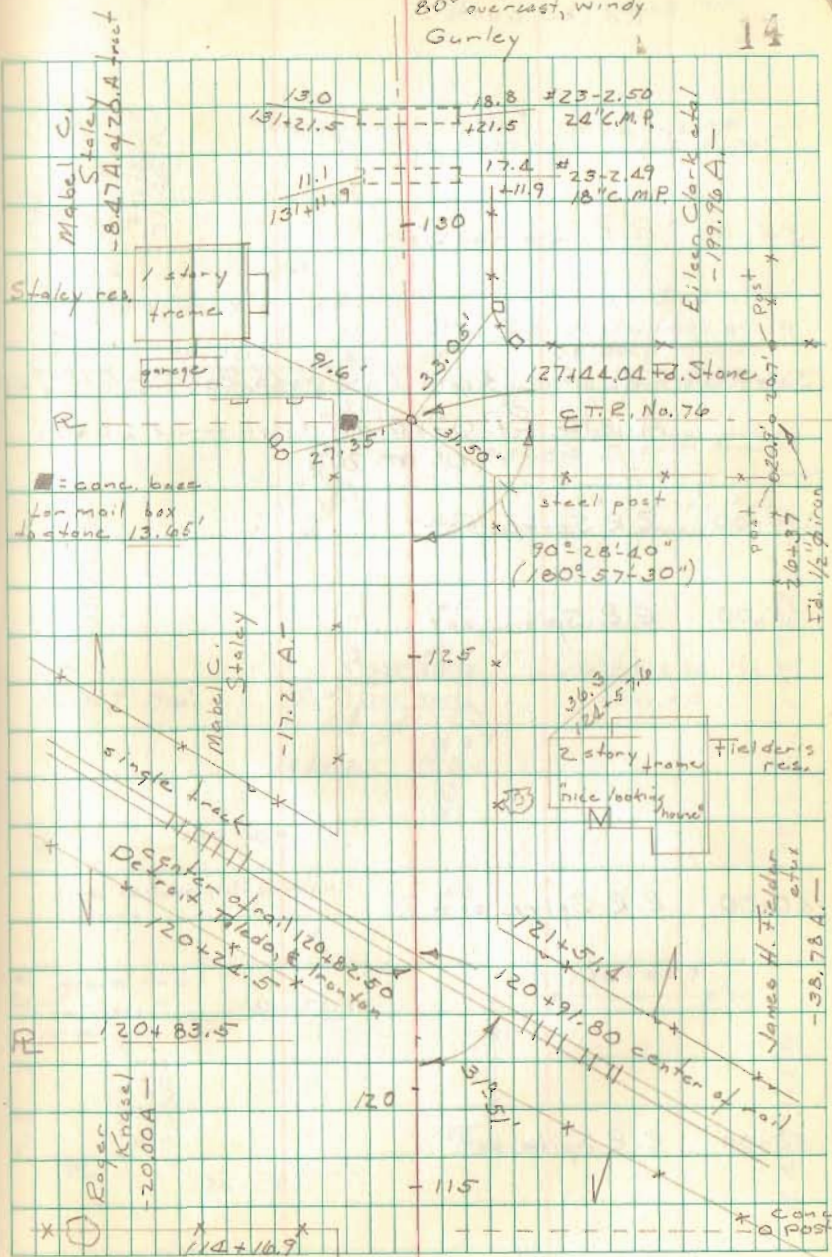 80° overcast, windy
Gumley
Mabel C.
Staley
-8.47A. of 26.A tract
13.0
131+21.5
18.8
+21.5
#23-2.50
24" C.M.P.
11.1
131+11.9
17.4
+11.9
#23-2.49
18" C.M.P.
130
Eileen Clark etal
-199.96 A.-
Staley res.
1 story
frame
garage
91.6'
33.05'
127+44.04 Fd. Stone
℄ T.R. No. 76
31.50'
27.35'
■ = conc. base
for mail box
to stone 13.65'
steel post
90°-28'-40"
(180°-57'-30")
Post
20.7'
20.9'
post
26+37
Fd. 1/2" ø iron
Mabel C.
Staley
-17.21 A.-
125
36.3
124+57.6
2 story
frame
"nice looking
house"
Fielder's
res.
single track
Center of rail 120+82.50
Detroit, Toledo, & Ironton
120+24.5
121+51.4
120+91.80 center of rail
James H. Fielder
etux
-38.78 A.-
120+83.5
31°-51'
120
Roger
Knasel
-20.00A-
115
114+16.9
Conc
Post